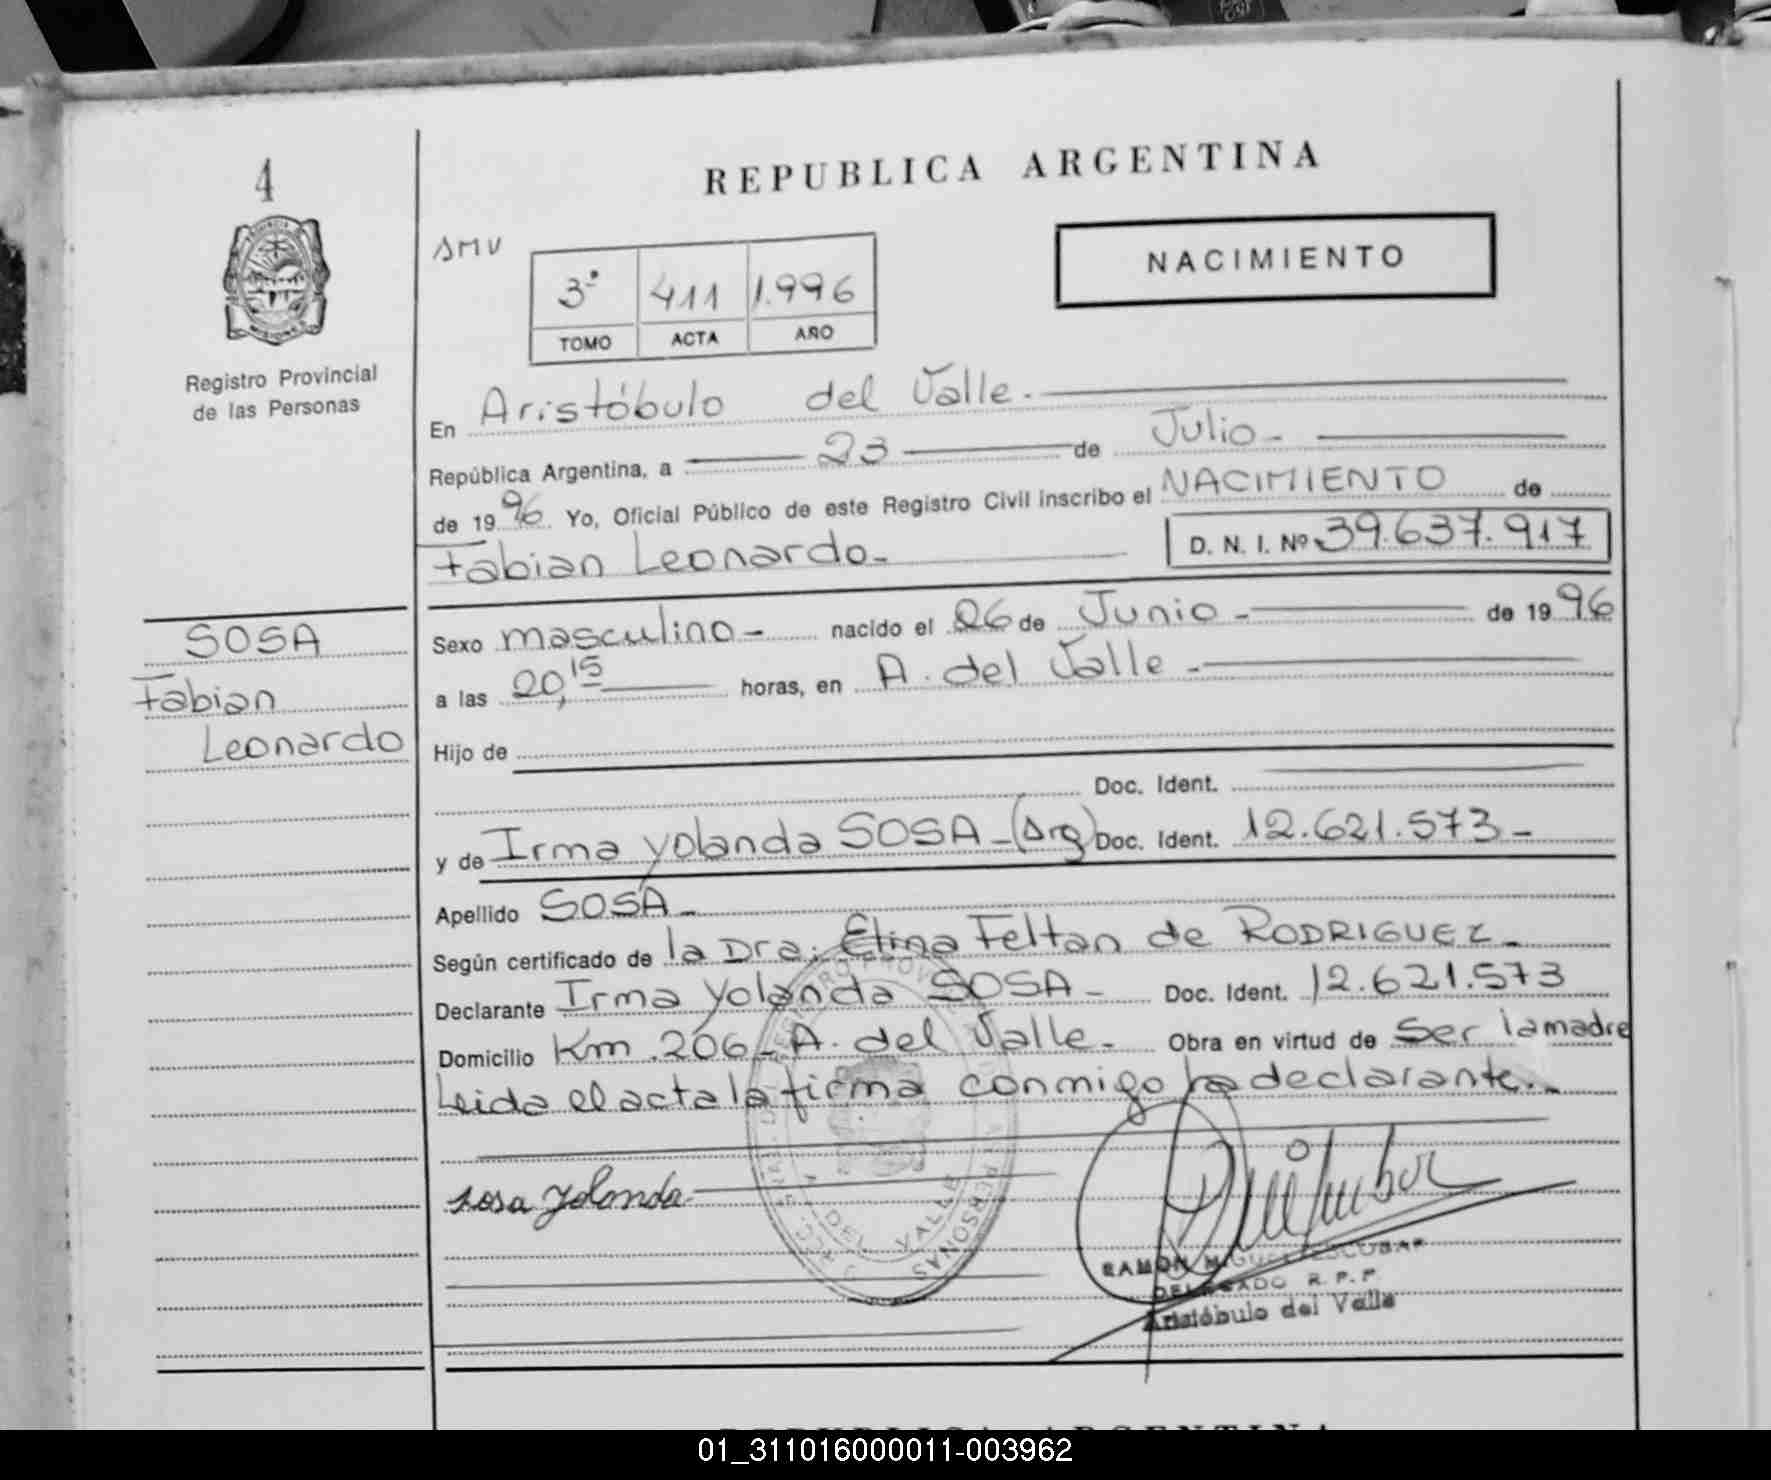 4
REPUBLICA ARGENTINA
SMU
3º 411 1.996
TOMO ACTA AÑO
NACIMIENTO
Registro Provincial
de las Personas
En Aristóbulo del Valle.-
República Argentina, a 23 de Julio-
de 1996. Yo, Oficial Público de este Registro Civil inscribo el NACIMIENTO de
Fabian Leonardo- D. N. I. Nº 39.637.917
SOSA
Fabian
Leonardo
Sexo masculino- nacido el 06 de Junio- de 1996
a las 20,15 horas, en A. del Valle-
Hijo de
Doc. Ident.
y de Irma Yolanda SOSA-(Arg) Doc. Ident. 12.621.573-
Apellido SOSA-
Según certificado de la Dra. Elina Feltan de RODRIGUEZ-
Declarante Irma Yolanda SOSA- Doc. Ident. 12.621.573
Domicilio Km.206-A. del Valle- Obra en virtud de Ser la madre
Leida el acta la firma conmigo la declarante.-
Sosa Yolanda
A. DEL VALLE
PERSONAS
RAMON MIGUEL ESCOBAR
DELEGADO R.P.P.
Aristóbulo del Valle
REPUBLICA ARGENTINA
01_311016000011-003962